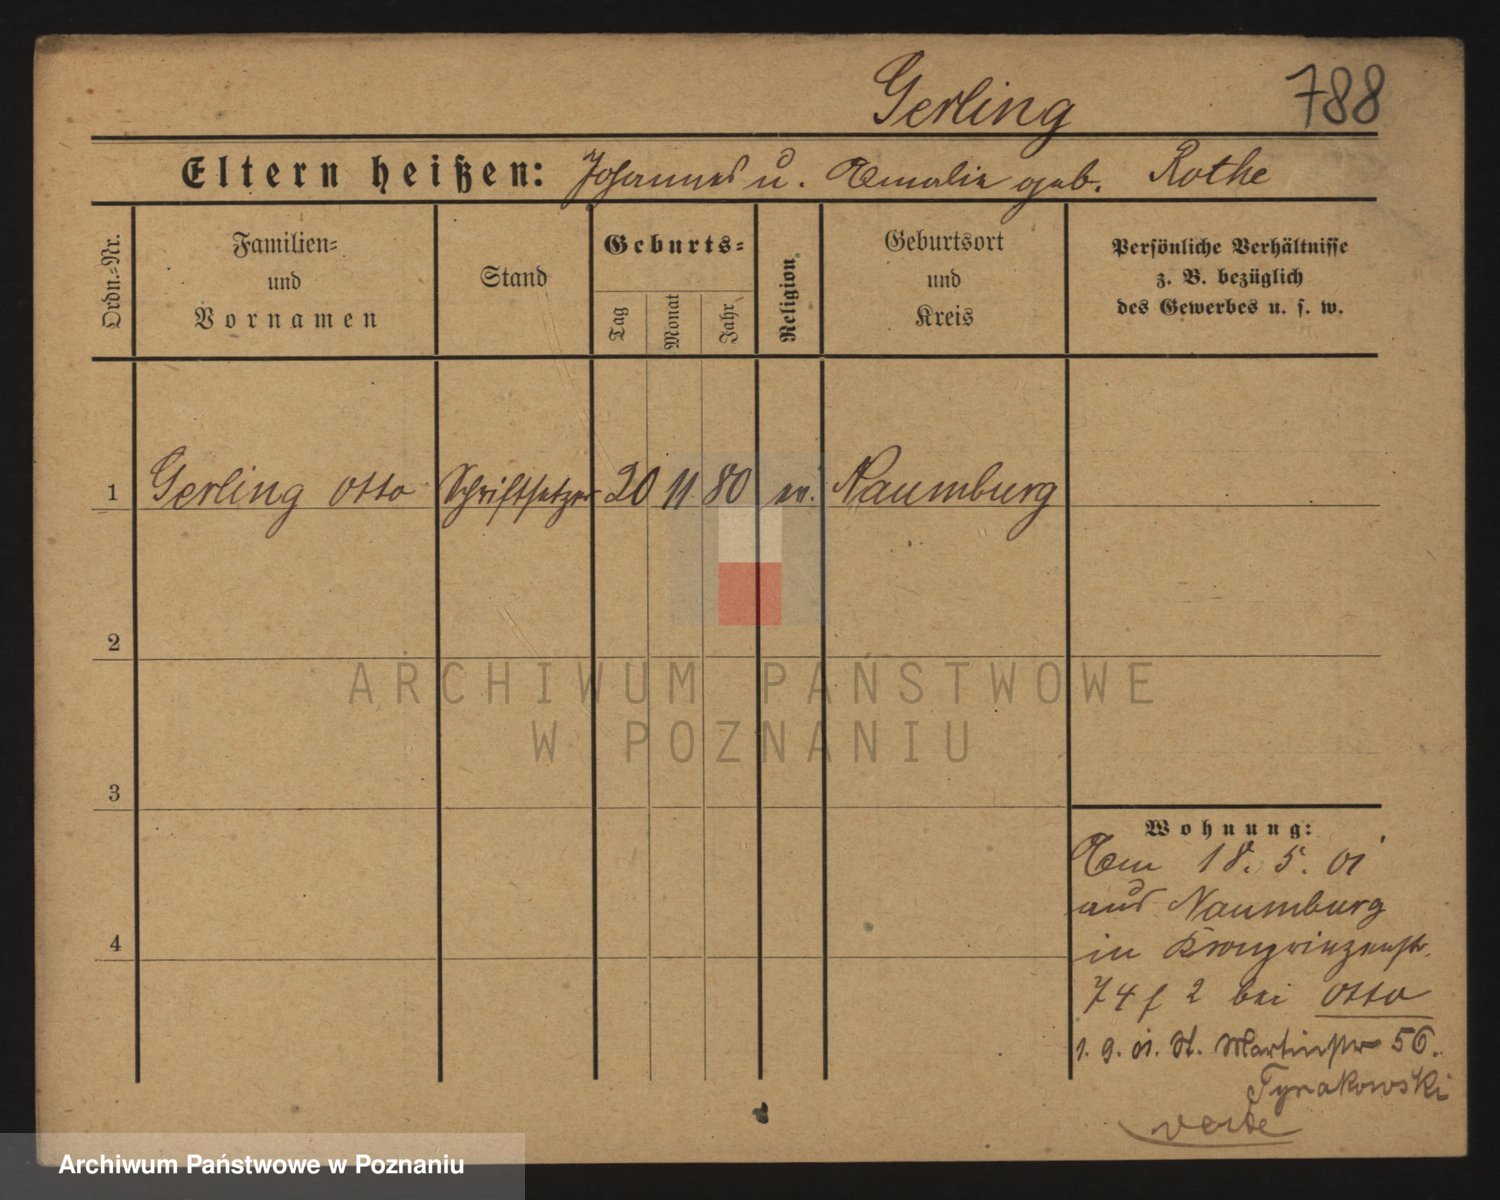 Gerling 788
Eltern heißen: Johannes u. Amalie geb. Rothe
Ordn.-Nr.
Familien-
und
Vornamen
Stand
Geburts-
Tag
Monat
Jahr
Religion
Geburtsort
und
Kreis
Persönliche Verhältnisse
z. B. bezüglich
des Gewerbes u. s. w.
1 Gerling Otto Schriftsetzer 20 11 80 ev. Naumburg
2
ARCHIWUM PAŃSTWOWE
W POZNANIU
3
4
Wohnung:
Am 18. 5. 01
aus Naumburg
in Kronprinzenstr.
74 f 2 bei Otto
1. 9. 01. St. Martinstr 56.
verte
Archiwum Państwowe w Poznaniu